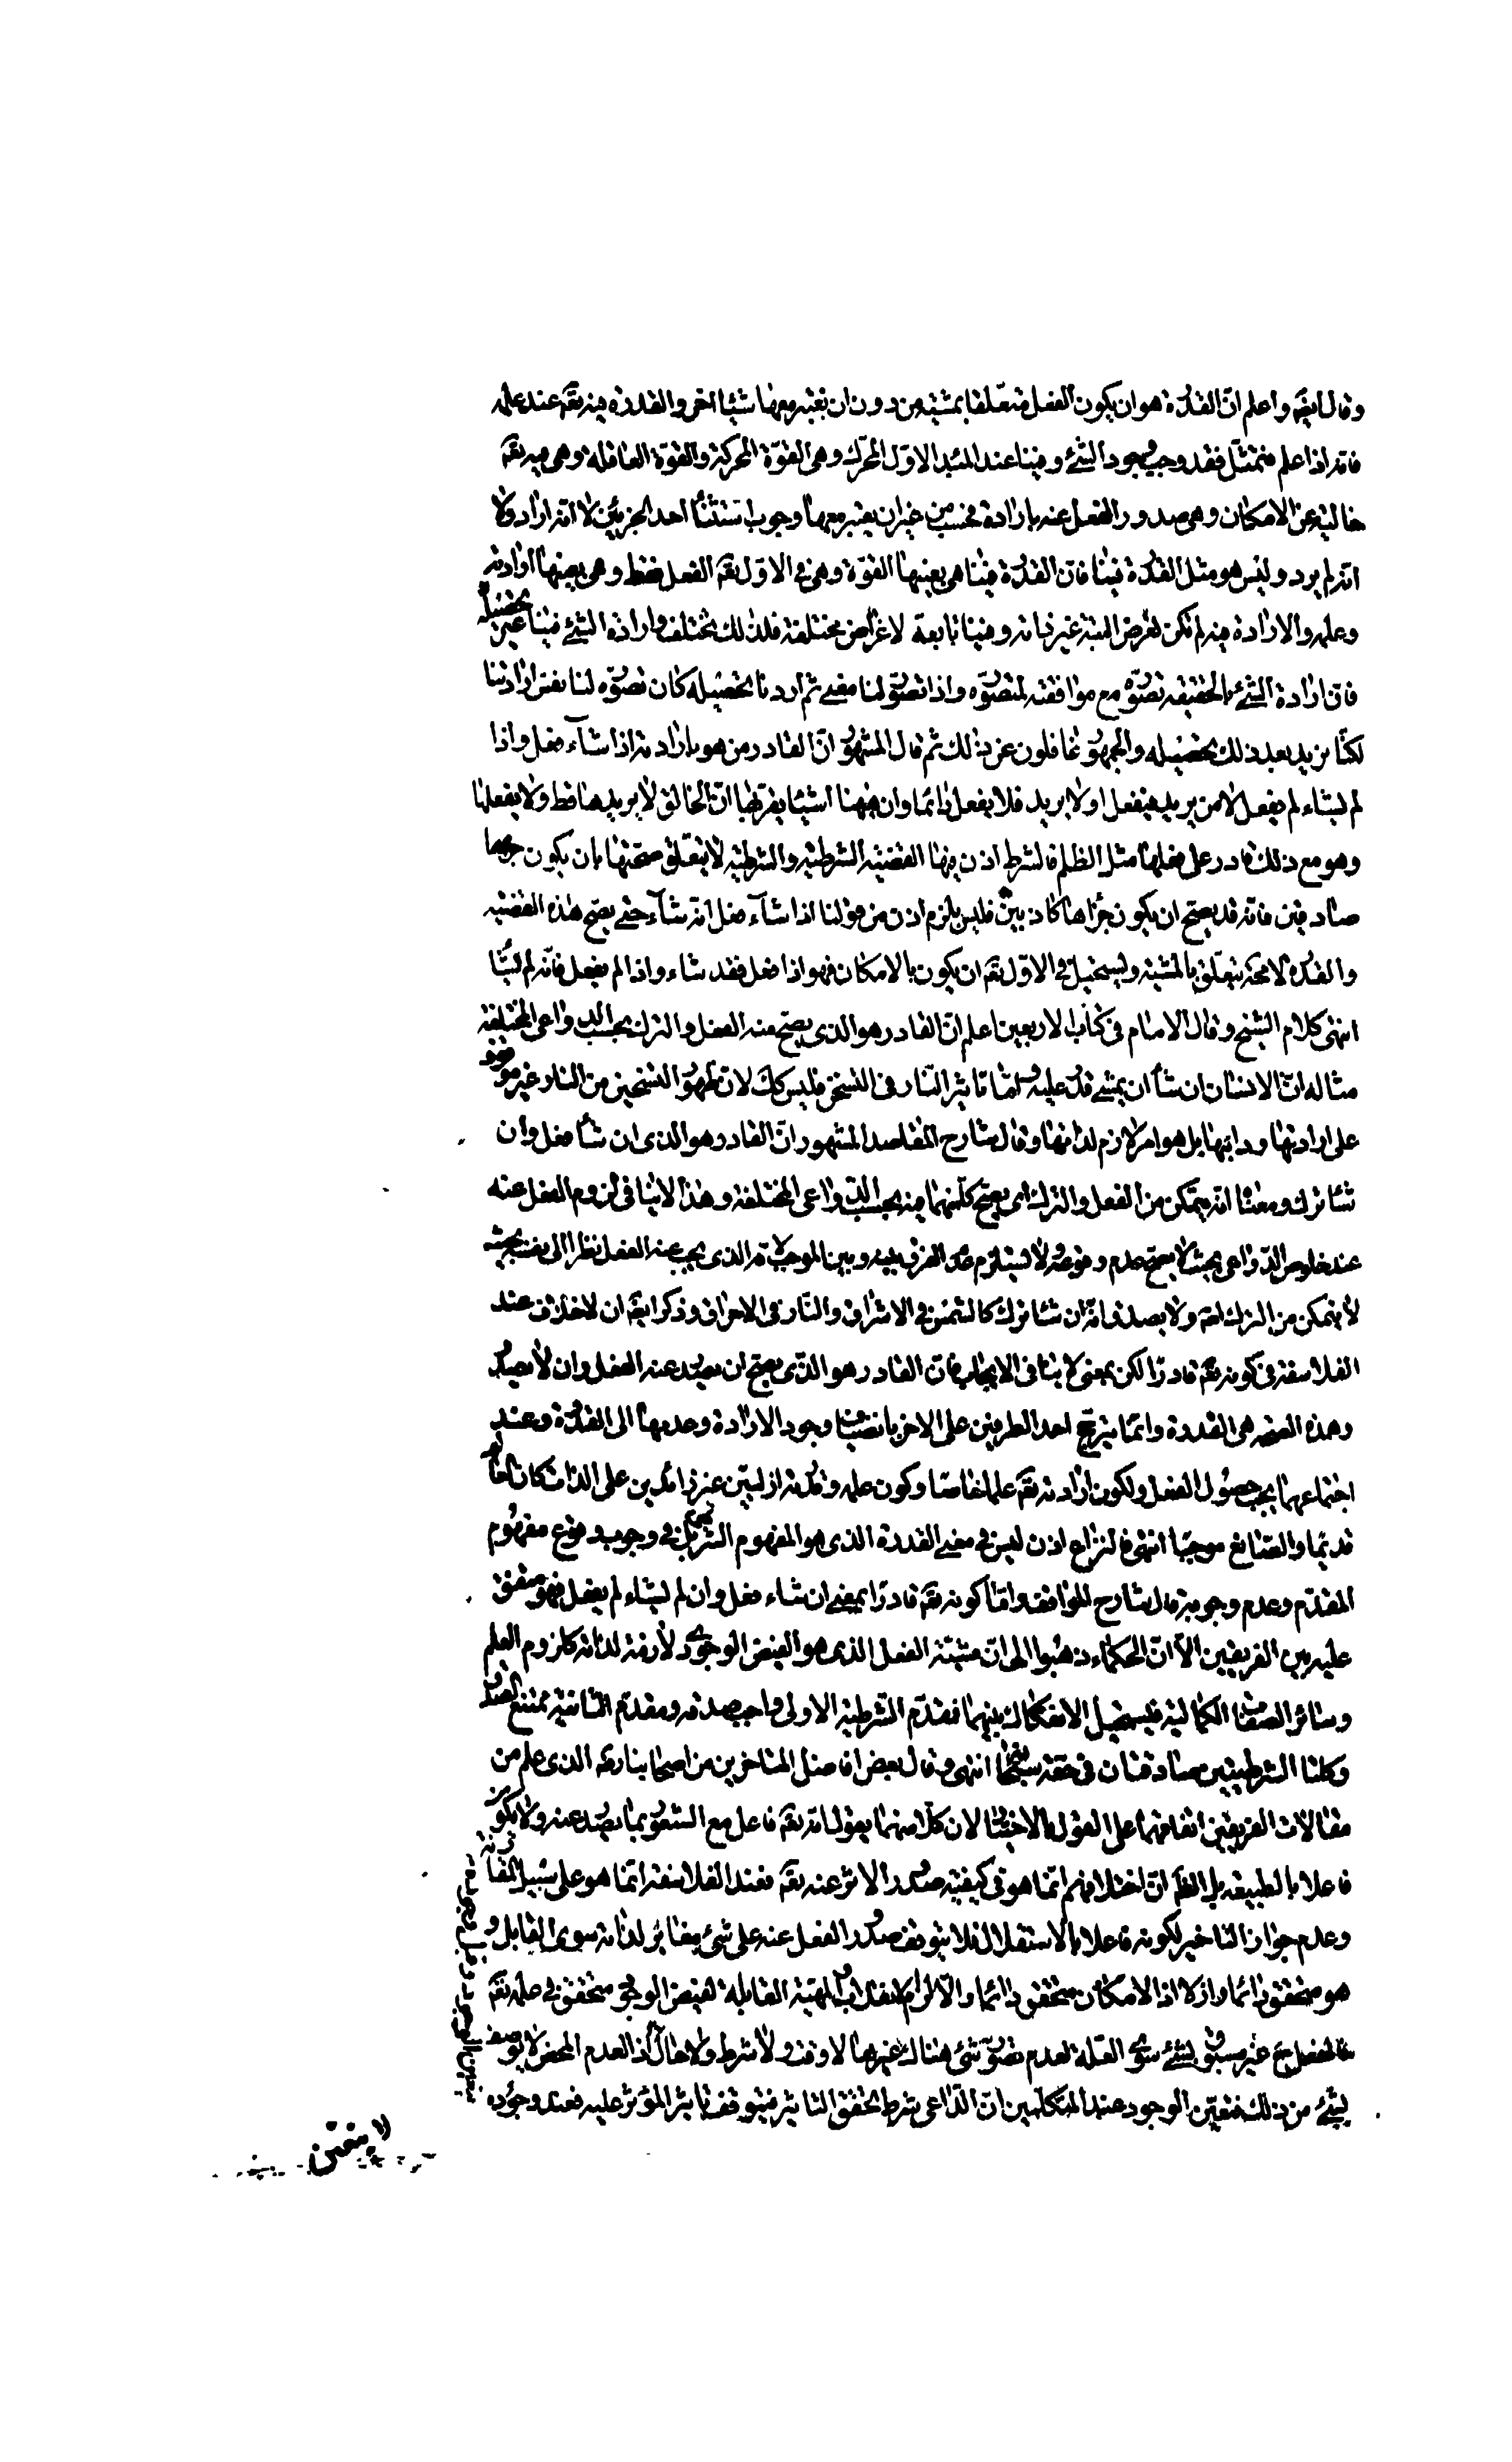 وقال ايضه واعلم ان القدرة هو ان يكون الفعل متعلقا بمشية من دون ان يعتبر معها شيئا آخر والقدرة فيه تقه عند علمه
فانه اذا علم فتمثل فقد وجب وجود الشئ وفينا عند المبدء الاول المحرك وهى القوة المحركة والقوة العاقلة وهى فيه تقه
خالية عن الامكان وهى صدور الفعل عنه بارادة فحسب من غير ان يعتبر معها وجوب استثنأ احد الجزئين لا انه اراد ولا
انه لم يرد وليس هو مثل القدرة فينا فان القدرة فينا هى بعينها القوة وهى فى الاول تقه الفعل فقط وهى بعينها ارادته
وعلمه والارادة فيه لم تكن لغرض البتة غير ذاته وفينا تابعة لاغراض مختلفة فلذلك تختلف وارادة الشئ فينا عين تحصيله
فان ارادة الشئ بالحقيقه تصوره مع موافقته لمتصوره واذا تصور لنا معنے ثم اردنا تحصيله كان تصوره لنا نفس ارادتنا
لكنا نريد بعد ذلك تحصيله والجمهور غافلون عن ذلك ثم قال المشهور ان القادر من هو بارادته اذا شآء فعل واذا
لم يشاء لم يفعل لا من يريد فيفعل اولا يريد فلا يفعل دائما وان ههنا اشيئا يقر بها ان الخالق لا يريدها قط ولا يفعلها
وهو مع ذلك قادر على فعلها مثل الظلم فالشرط اذن فيها القضيه الشرطية والشرطية لا يتعلق صحتها بان يكون جزءاها
صادقين فانه قد يصح ان يكون جزأها كاذبين فليس يلزم اذن من قولنا اذا شآء فعل انه شآء حتے يصح هذه القضيه
والقدرة لا محه يتعلق بالمشية ويستحيل فى الاول تقه ان يكون بالامكان فهو اذا فعل فقد شاء واذا لم يفعل فانه لم يشأ
انتهى كلام الشيخ وقال الامام فى كتاب الاربعين اعلم ان القادر هو الذى يصح منه الفعل والترك بحسب الدواعى المختلفة
مثاله ان الانسان ان شأ ان يمشے قدر عليه واما تاثير النار فى التسخين فليس كك لان ظهور التسخين من النار غير موقوف
على ارادتها وداعيها بل هو امر لازم لذاتها وقال شارح المقاصد المشهور ان القادر هو الذى ان شأ فعل وان
شأ ترك ومعناه انه يتمكن من الفعل والترك اى يصح كل منهما منه بحسب الدواعى المختلفة وهذا لا ينافى لزوم الفعل عنه
عند خلوص الدواعى بحيث لا يصح عدم وقوعه ولا يستلزم عدم الفرق بينه وبين الموجب لانه الذى يجب عنه الفعل نظرا الى نفسه بحيث
لا يتمكن من الترك اصه ولا يصدق انه ان شأ ترك كالشمس فى الاشراق والنار فى الاحراق وذكر ايضه ان لا خلاف عند
الفلاسفة فى كونه تقه قادرا لكن بمعنى لا ينافى الايجاب فان القادر هو الذى يصح ان يصدر عنه الفعل وان لا يصدر
وهذه الصحه هى القدرة وانما يترجح احد الطرفين على الاخر بانضياف وجود الارادة وعدمها الى القدرة وعند
اجتماعهما يجب حصول الفعل ولكون ارادته تقه علما خاصا وكون علمه وقدرته ازليين غير زائدين على الذات كان العالم
قديما والصانع موجبا انتهى فالنزاع اذن ليس فى معنے القدرة الذى هو المفهوم الشرطى بل فى وجوب وقوع مفهوم
المقدم وعدم وجوبه قال شارح المواقف واما كونه تقه قادرا بمعنے ان شاء فعل وان لم يشاء لم يفعل فهو متفق
عليه بين الفريقين الا ان الحكماء ذهبوا الى ان مشية الفعل الذى هو الفيض والجود لازمة لذاته كلزوم العلم
وسائر الصفات الكمالية فيستحيل الانفكاك بينهما فمقدم الشرطية الاولى واجب صدقه ومقدم الثانية ممتنع الصدق
وكلتا الشرطيتين صادقتان فى حقه سبحانه انتهى وقال بعض افاضل المتاخرين من اصحابنا ره الذى علم من
مقالات الفريقين اتفاقهما على القول بالاختيار لان كلا منهما يقول انه تقه فاعل مع الشعور بما يصدر عنه ولا يكون
فاعلا بالطبيعه بل الظه ان اختلافهم انما هو فى كيفية صدور الاثر عنه تقه فعند الفلاسفة انما هو على سبيل المقارنة
وعدم جواز التاخير لكونه فاعلا بالاستقلال فلا يتوقف صدور الفعل عنه على شئ مغائر لذاته سوى القابل و
هو متحقق دائما وازلا اذ الامكان متحقق دائما والا لزم الانقلاب والمهية القابلة لفيض الوجود متحقق فى علمه تقه
فالفعل ح غير مسبوق بشئے سوى العلة لعدم تصور شئ هناك غيرها لا وقت ولا شرط ولا حال اذ العدم المحض لا يوصف
بشئے من ذلك فتعين الوجود عند المتكلمين ان الداعى شرط لتحقق التاثير فيتوقف تاثير المؤثر عليه فعند وجوده
لا يتعين